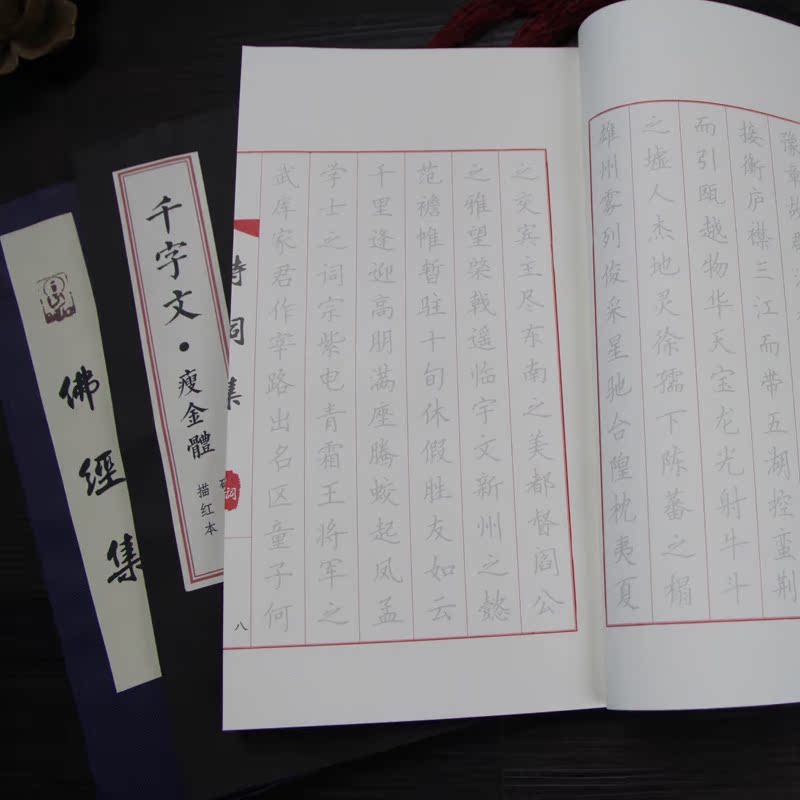 豫章故郡
接衡庐襟三江而带五湖控蛮荆
而引瓯越物华天宝龙光射牛斗
之墟人杰地灵徐孺下陈蕃之榻
雄州雾列俊采星驰台隍枕夷夏
之交宾主尽东南之美都督阎公
之雅望棨戟遥临宇文新州之懿
范襜帷暂驻十旬休假胜友如云
千里逢迎高朋满座腾蛟起凤孟
学士之词宗紫电青霜王将军之
武库家君作宰路出名区童子何
诗词集
词
八
千字文·瘦金體
描红本
佛經集